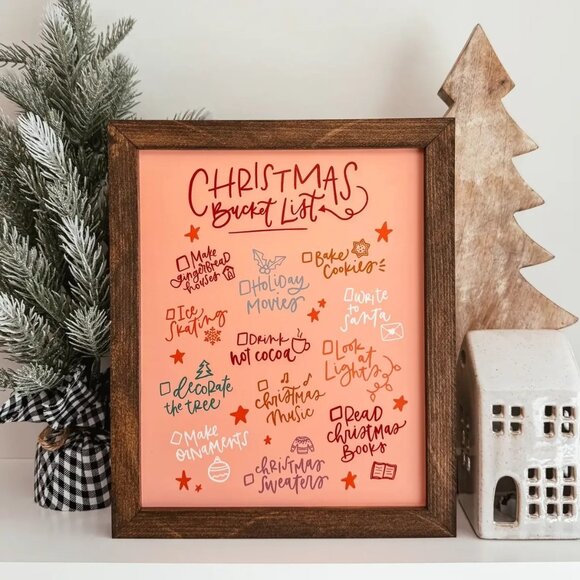 CHRISTMAS
Bucket List
Make
gingerbread
houses
Holiday
Movies
Bake
Cookies
Ice
Skating
Write
to
Santa
Drink
hot cocoa
Look
at
Lights
decorate
the tree
christmas
Music
Make
ornaments
Read
christmas
Books
christmas
sweaters